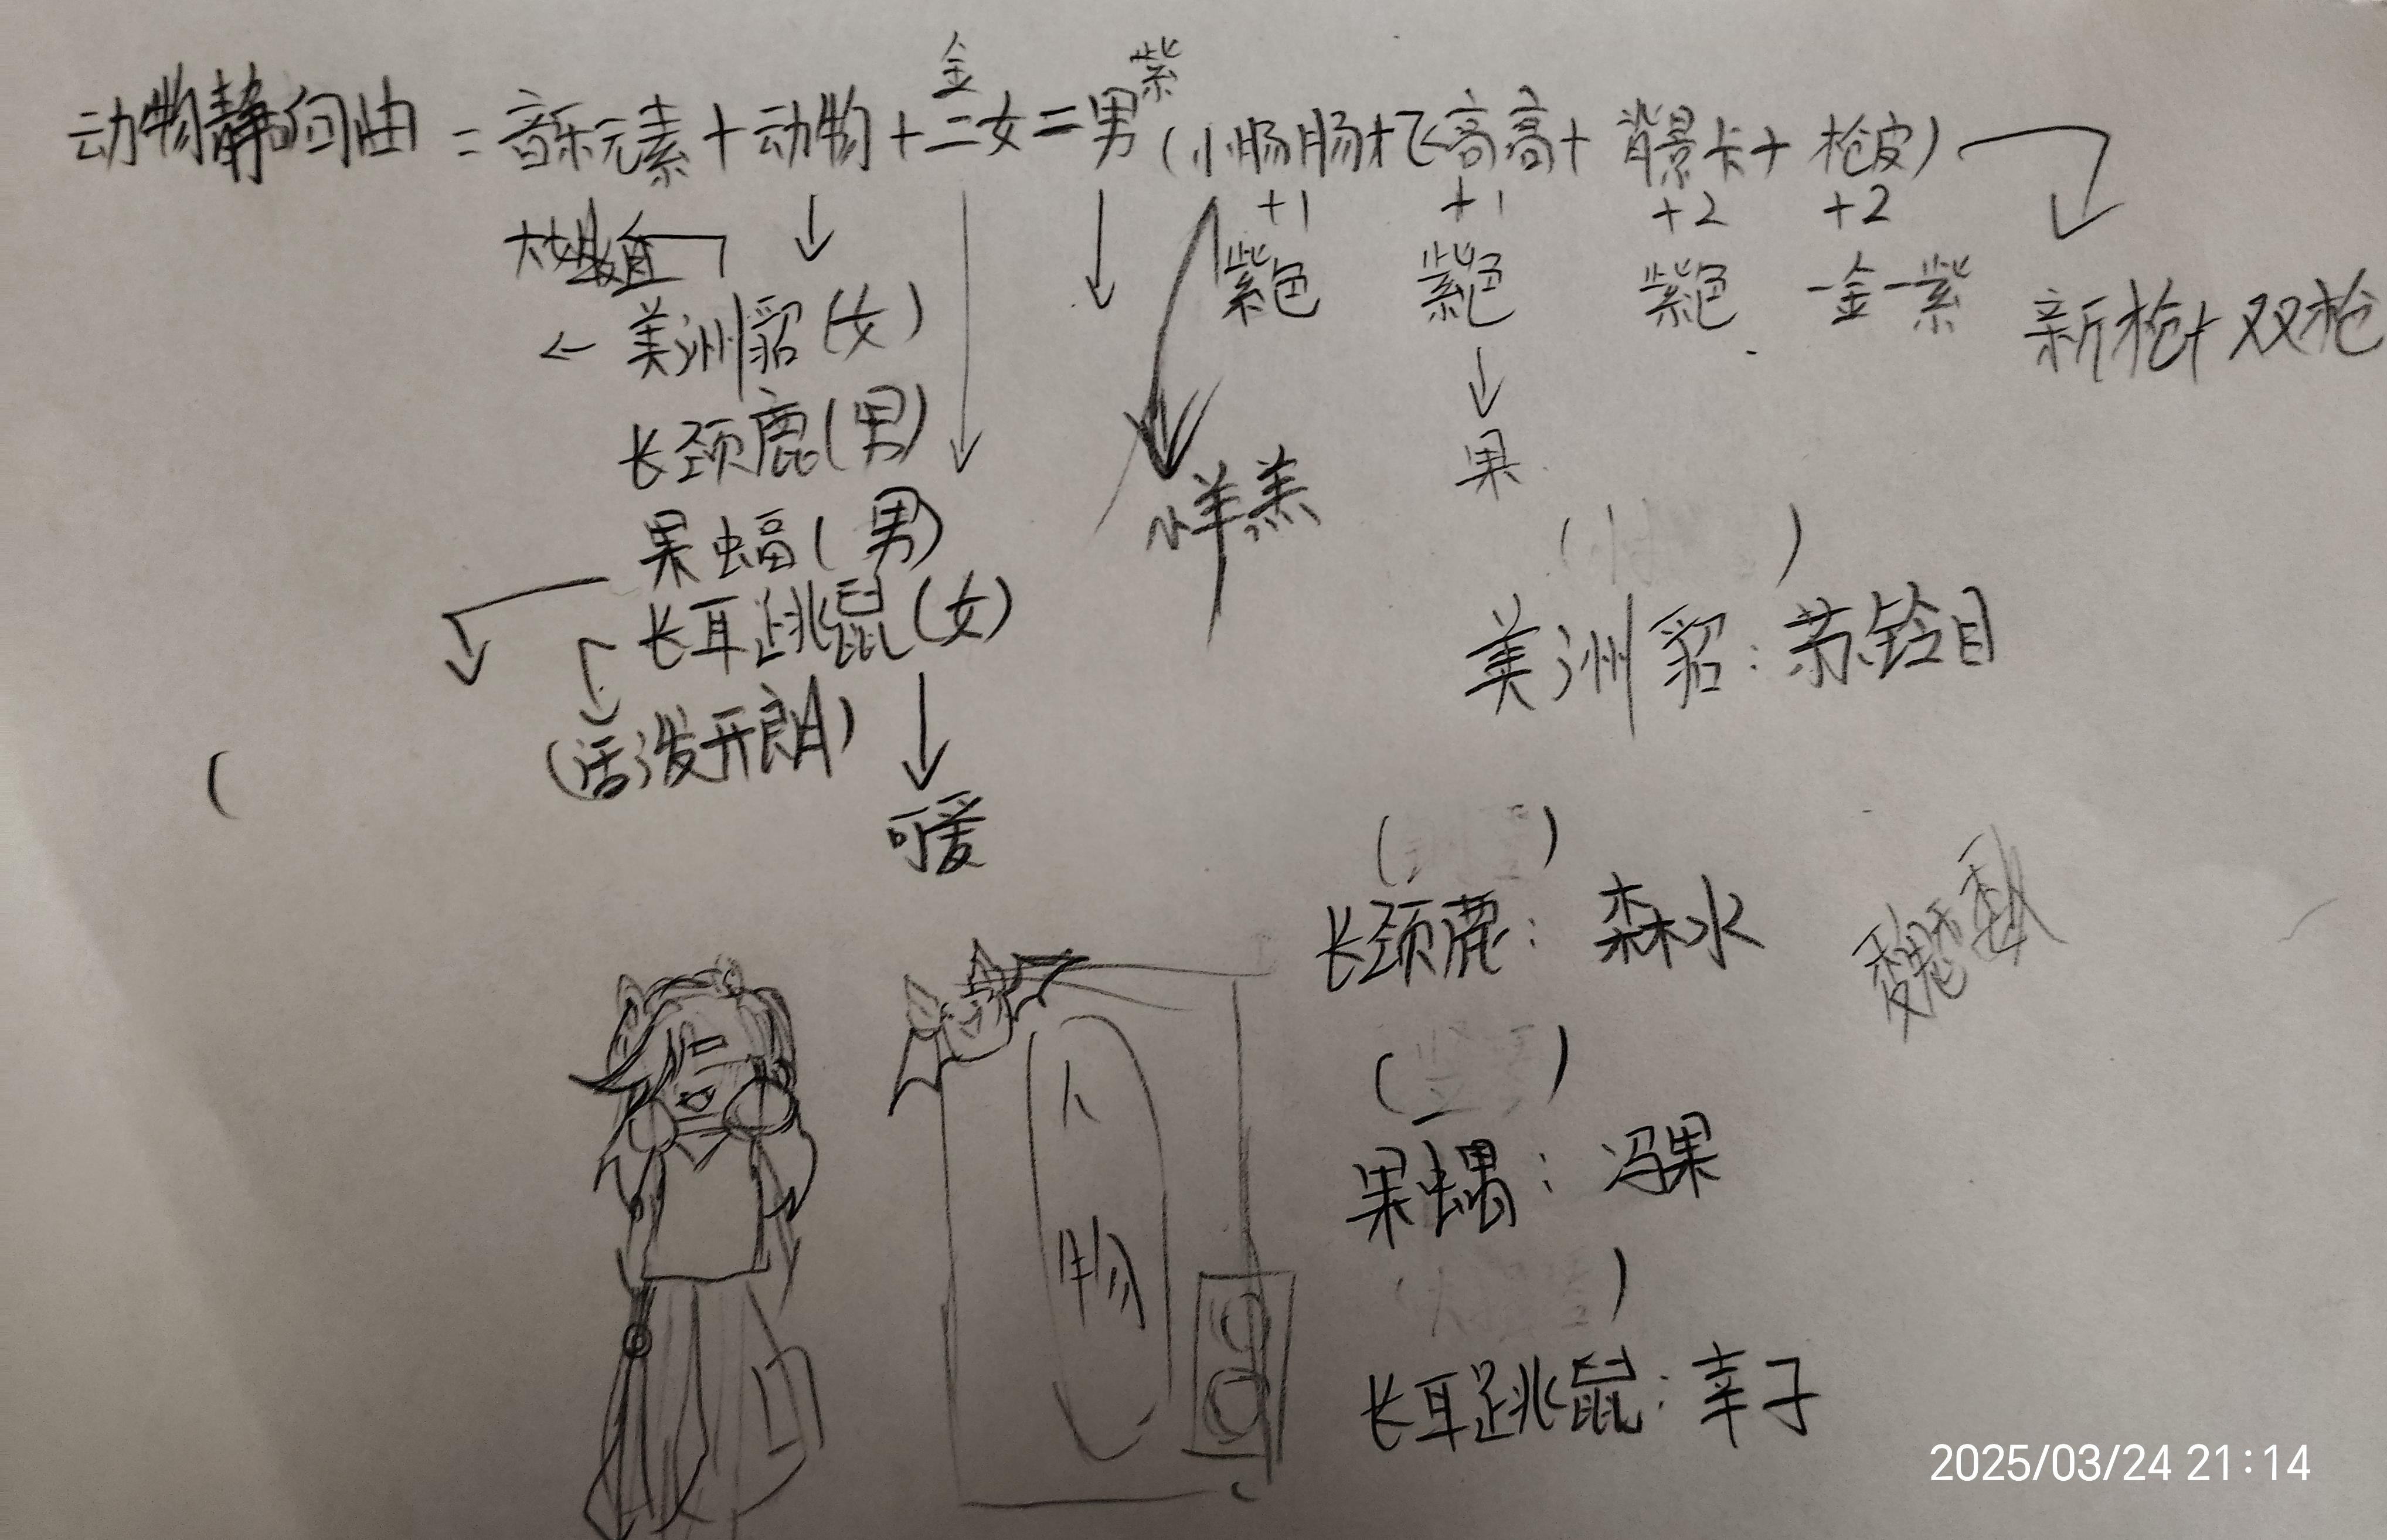 金 紫
动物静向曲 = 音乐元素 + 动物 + 二女 = 男 (小肠肠 + 飞高高 + 背景卡 + 枪皮)
+1 +1 +2 +2
紫色 紫色 紫色 一金一紫
新枪 + 双枪
美洲貂(女)
长颈鹿(男)
果
果蝠(男)
咩羔
长耳跳鼠(女)
(活泼开朗)
可爱
美洲貂: 苏铃目
长颈鹿: 森水
人
物
冯果
长耳跳鼠: 幸子
2025/03/24 21:14